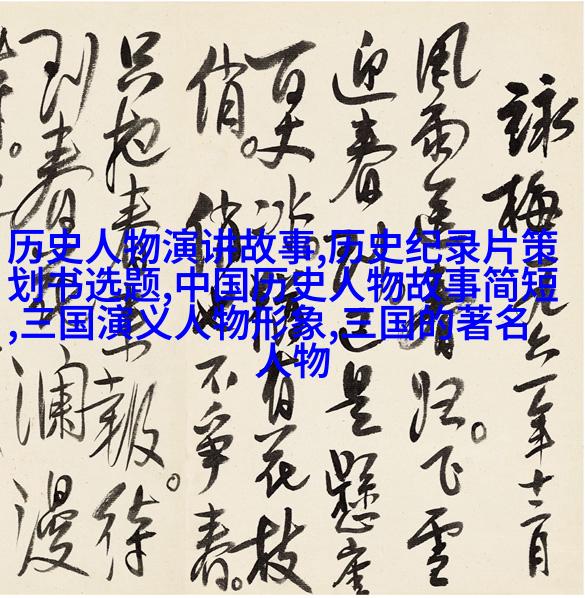 詠梅 一九六一年十二月
風雨送春归。飞雪
迎春到已是懸崖
百丈冰。犹有花枝
俏。俏也不爭春。
只把春来報。待
到春瀾漫
历史人物演讲故事,历史纪录片策
划书选题,中国历史人物故事简短
,三国演义人物形象,三国的著名
人物